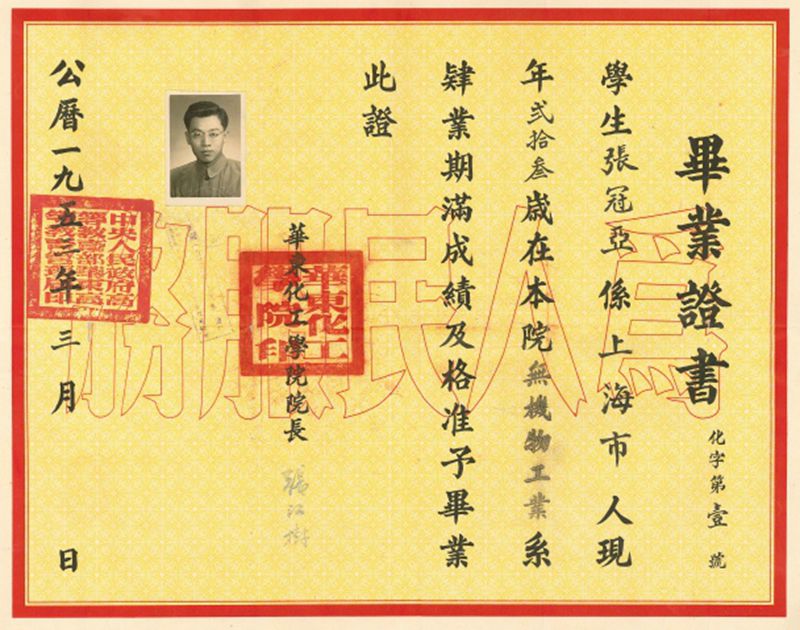 畢業證書
化字第壹號
學生張冠亞係上海市人現
年弍拾叁歲在本院無機物工業系
肄業期滿成績及格准予畢業
此證
華東化工學院院長
張江樹
華東化工學院印
公曆一九五三年三月 日
中央人民政府高等教育部華東高等教育管理局印
為人民服務